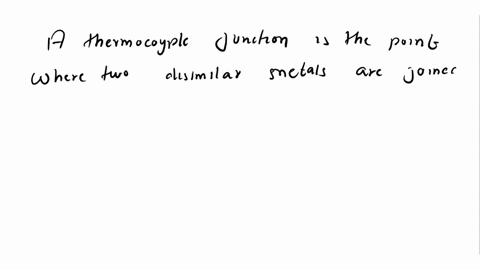 A thermocople Junction is the point
where two disimilar metals are joined